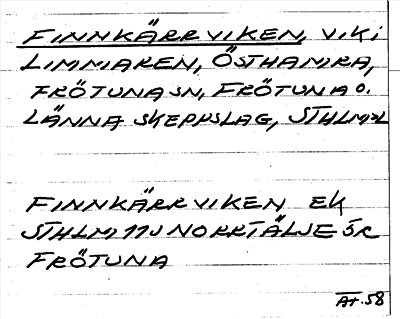 FINNKÄRRVIKEN, VIK i
LIMMAREN, ÖSTHAMRA,
FRÖTUNA SN, FRÖTUNA O.
LÄNNA SKEPPSLAG, STHLM
FINNKÄRRVIKEN EK
STHLM 11J NORRTÄLJE SR
FRÖTUNA
At. 58